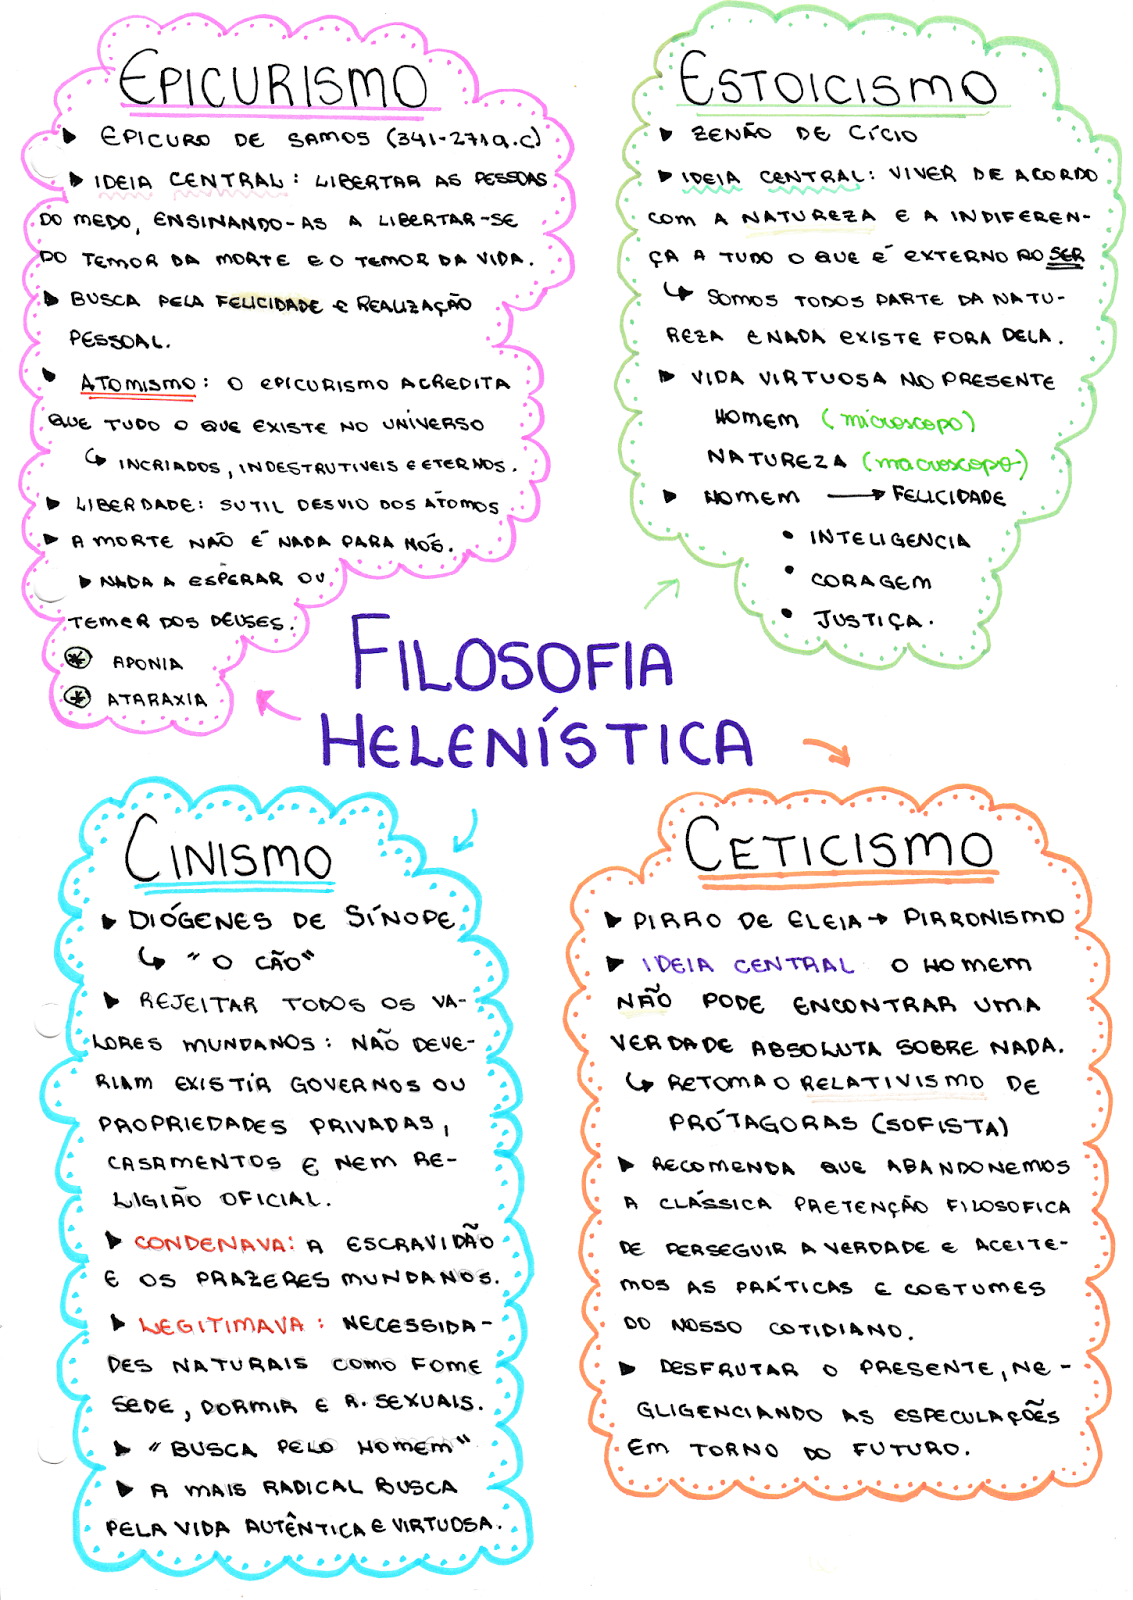 EPICURISMO
▶ EPICURO DE SAMOS (341-271a.C)
▶ IDEIA CENTRAL: LIBERTAR AS PESSOAS
DO MEDO, ENSINANDO-AS A LIBERTAR-SE
DO TEMOR DA MORTE E O TEMOR DA VIDA.
▶ BUSCA PELA FELICIDADE E REALIZAÇÃO
PESSOAL.
▶ ATOMISMO: O EPICURISMO ACREDITA
QUE TUDO O QUE EXISTE NO UNIVERSO
↳ INCRIADOS, INDESTRUTIVEIS E ETERNOS.
▶ LIBERDADE: SUTIL DESVIO DOS ÁTOMOS
▶ A MORTE NÃO É NADA PARA NÓS.
▶ NADA A ESPERAR OU
TEMER DOS DEUSES.
* APONIA
* ATARAXIA
ESTOICISMO
▶ ZENÃO DE CÍCIO
▶ IDEIA CENTRAL: VIVER DE ACORDO
COM A NATUREZA E A INDIFEREN-
ÇA A TUDO O QUE É EXTERNO AO SER
↳ SOMOS TODOS PARTE DA NATU-
REZA E NADA EXISTE FORA DELA.
▶ VIDA VIRTUOSA NO PRESENTE
HOMEM (microscopo)
NATUREZA (macroscopo)
▶ HOMEM → FELICIDADE
• INTELIGENCIA
• CORAGEM
• JUSTIÇA.
FILOSOFIA
HELENÍSTICA
CINISMO
▶ DIÓGENES DE SÍNOPE
↳ "O CÃO"
▶ REJEITAR TODOS OS VA-
LORES MUNDANOS: NÃO DEVE-
RIAM EXISTIR GOVERNOS OU
PROPRIEDADES PRIVADAS,
CASAMENTOS E NEM RE-
LIGIÃO OFICIAL.
▶ CONDENAVA: A ESCRAVIDÃO
E OS PRAZERES MUNDANOS.
▶ LEGITIMAVA: NECESSIDA-
DES NATURAIS COMO FOME
SEDE, DORMIR E R. SEXUAIS.
▶ "BUSCA PELO HOMEM"
▶ A MAIS RADICAL BUSCA
PELA VIDA AUTÊNTICA E VIRTUOSA.
CETICISMO
▶ PIRRO DE ELEIA → PIRRONISMO
▶ IDEIA CENTRAL O HOMEM
NÃO PODE ENCONTRAR UMA
VERDADE ABSOLUTA SOBRE NADA.
↳ RETOMA O RELATIVISMO DE
PRÓTAGORAS (SOFISTA)
▶ RECOMENDA QUE ABANDONEMOS
A CLÁSSICA PRETENÇÃO FILOSOFICA
DE PERSEGUIR A VERDADE E ACEITE-
MOS AS PRÁTICAS E COSTUMES
DO NOSSO COTIDIANO.
▶ DESFRUTAR O PRESENTE, NE-
GLIGENCIANDO AS ESPECULAÇÕES
EM TORNO DO FUTURO.